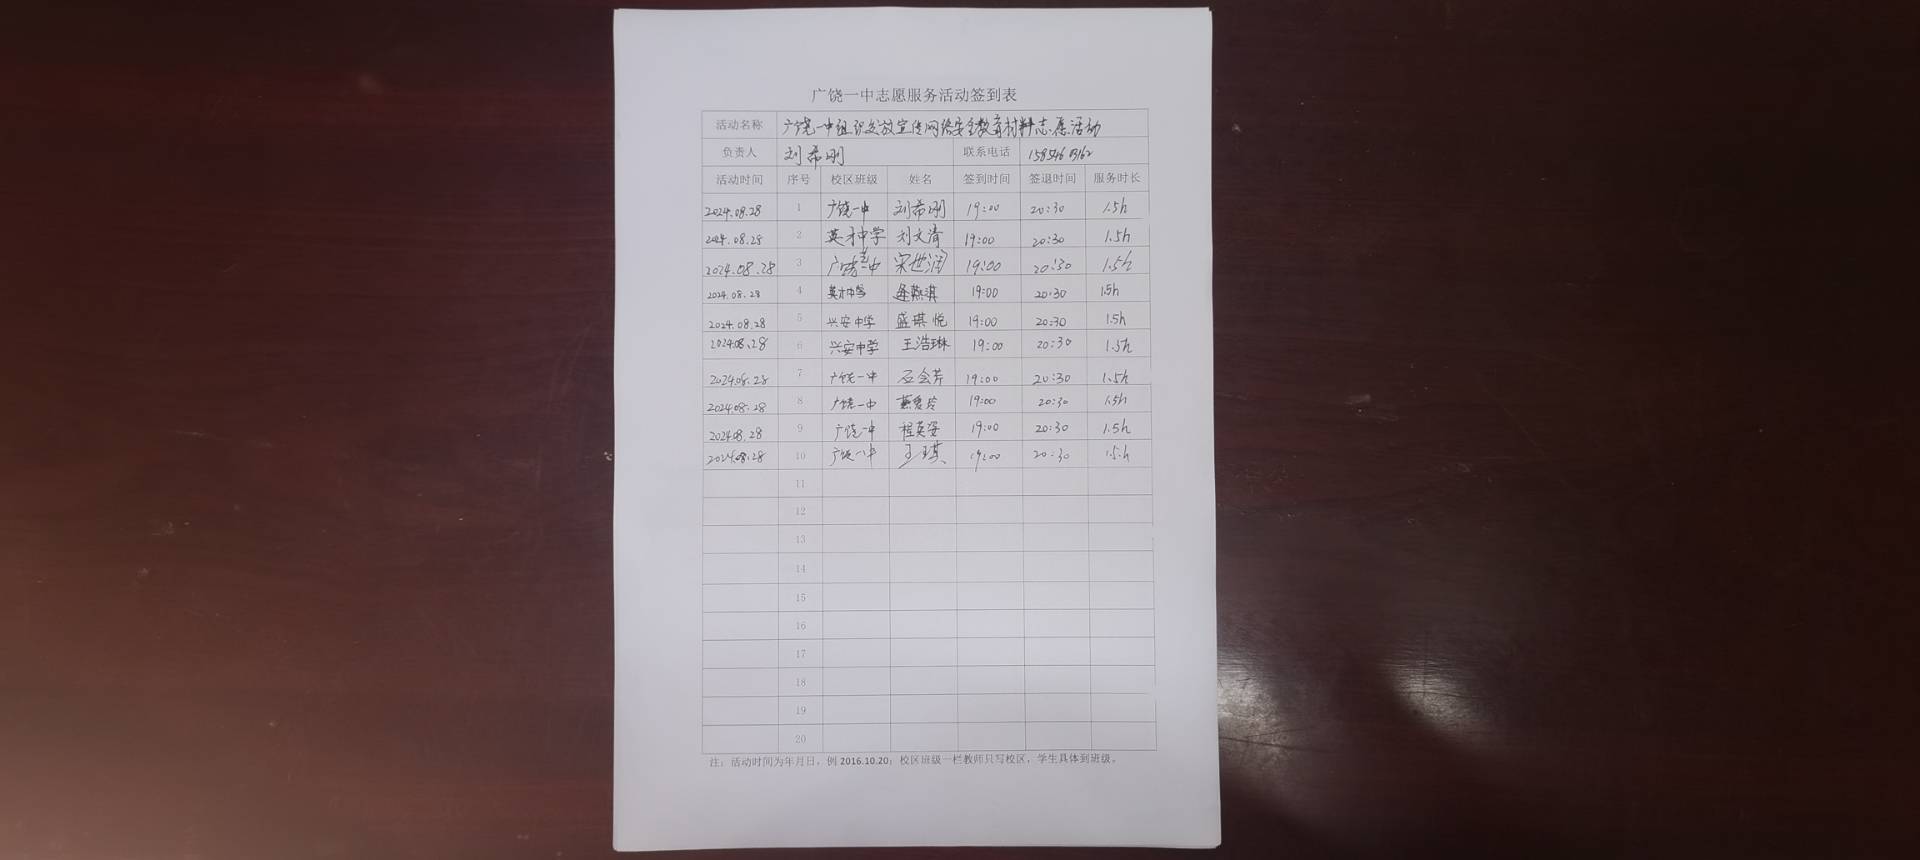 广饶一中志愿服务活动签到表
活动名称 广饶一中组织发放宣传网络安全教育材料志愿活动
负责人 刘希刚 联系电话
活动时间 序号 校区班级 姓名 签到时间 签退时间 服务时长
2024.08.28 1 广饶一中 刘希刚 19:00 20:30 1.5h
2024.08.28 2 英才中学 刘文清 19:00 20:30 1.5h
2024.08.28 3 广饶一中 宋世润 19:00 20:30 1.5h
2024.08.28 4 英才中学 19:00 20:30 1.5h
2024.08.28 5 兴安中学 盛琪悦 19:00 20:30 1.5h
2024.08.28 6 兴安中学 王浩琳 19:00 20:30 1.5h
2024.08.28 7 广饶一中 石会芳 19:00 20:30 1.5h
2024.08.28 8 广饶一中 燕爱玲 19:00 20:30 1.5h
2024.08.28 9 广饶一中 程英姿 19:00 20:30 1.5h
2024.08.28 10 广饶一中 王琪 19:00 20:30 1.5h
11
12
13
14
15
16
17
18
19
20
注：活动时间为年月日，例 2016.10.20；校区班级一栏教师只写校区，学生具体到班级。